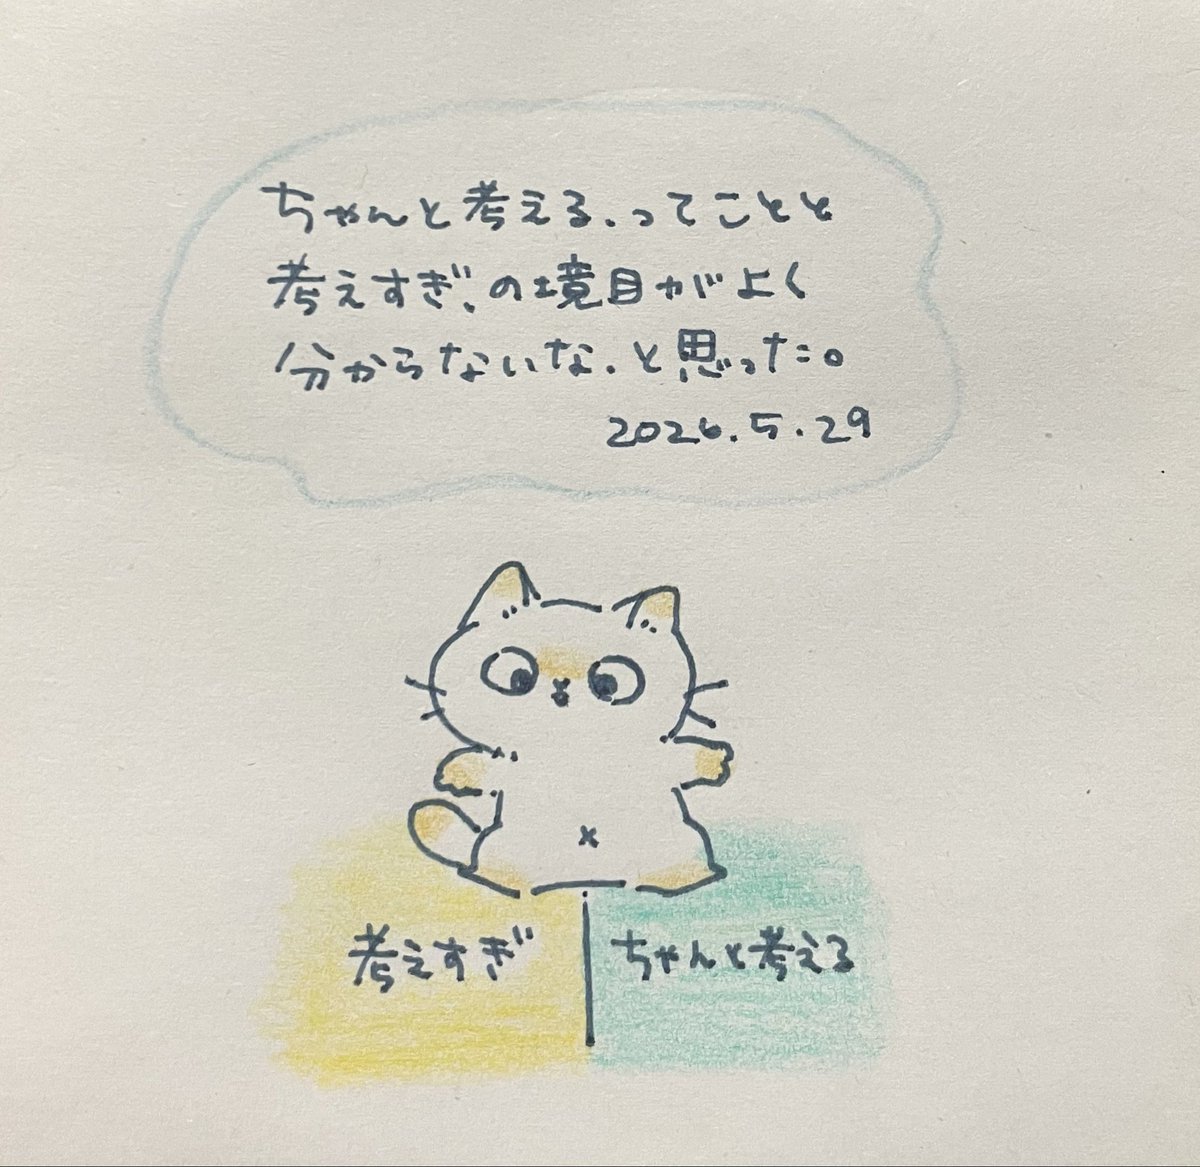 ちゃんと考える、ってことと
考えすぎ、の境目がよく
分からないな、と思った。
2026.5.29
考えすぎ
ちゃんと考える